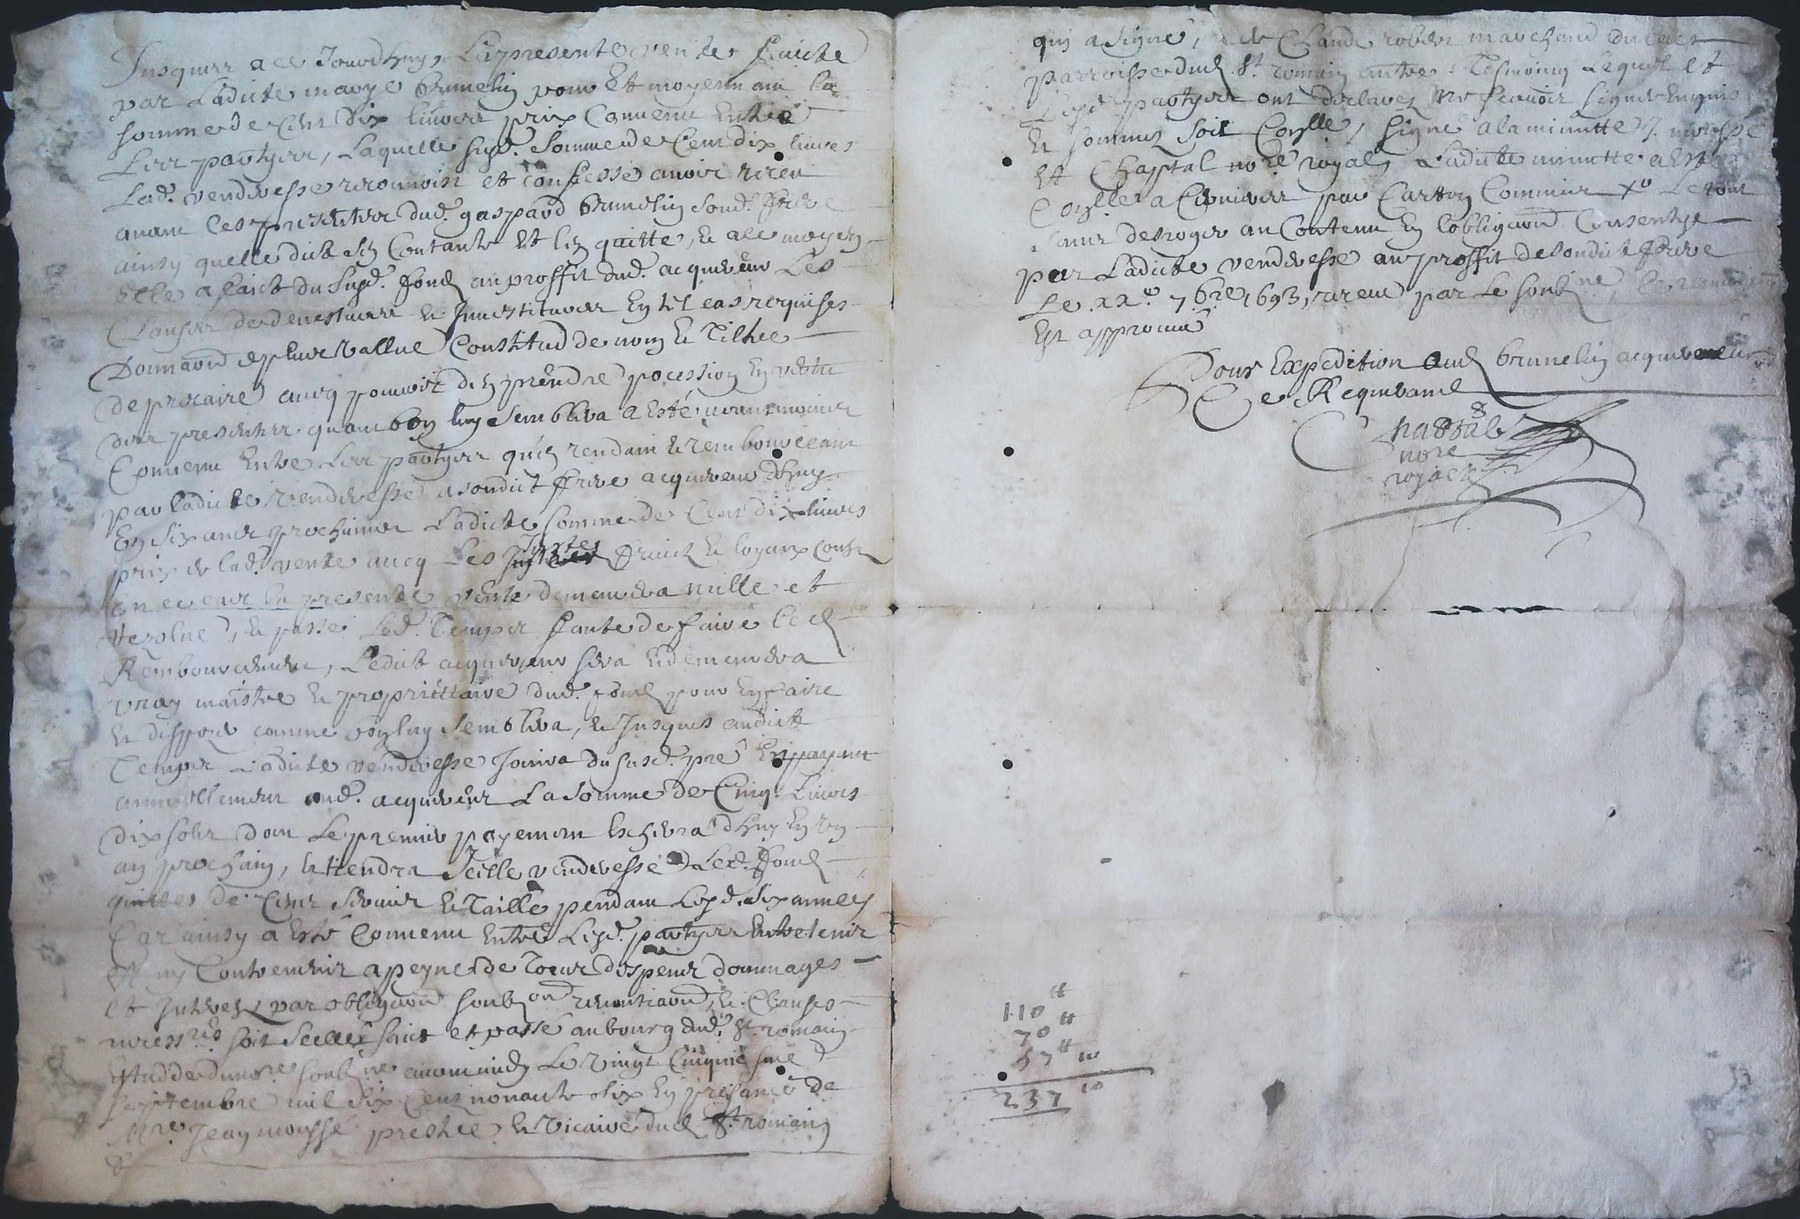 Jusques a ce Jourdhuy, La presente vente faicte
par Ladicte marye brunelin pour Et moyenant la
somme de Cent dix livres prix Convenu Entre
Lesd. partyes, Laquelle susd. somme de Cent dix livres
Lad. vendresse recognoist et confesse avoir receu
avant ces presentes dud. gaspard brunelin sond. frere
ainsy quelle dict sen Contante Et len quitte, & au moyen
elle a faict du susd. fond au proffit dud. acquereur Les
Clauses de devestures & Investitures En tel cas requises
Donnaon de plus vallue Constitud de nom & Tiltre
de precaire avecq pouvoir den prendre pocession En vertu
des presentes quant bon luy semblera a Esté neantmoings
Convenu Entre Les partyes quen rendant & rembourceant
par ladicte vendresse a sondict frere acquereur dhuy
En six ans prochaines Ladicte somme de Cent dix livres
prix de lad. vente avecq Les Justes fraictz & loyaux couts
En ce cas la presente vente demeurera nulle et
resolue, & passé Led. Temps faute de faire led.
Rembourcement, Ledict acquereur sera & demeurera
vray maistre & proprietaire dud. fond pour En faire
& disposer comme bon luy semblera, & Jusques audict
Temps Ladicte vendresse Jouira du susd. pré En payant
annuellement aud. acquereur La somme de Cinq Livres
dix solz dont Le premier payement Escherra dhuy En un
an prochain, & tiendra Icelle vendresse Led. fond
quitte de Cens Servis & Taille pendant Lesd. six années
Car ainsy a Esté Convenu Entre Lesd. partyes Entretenir
Et ny Contrevenir a peyne de Tous despens dommages
et Intherestz par obligaon soubzon renontiaon, & Clauses
necessres soit scellé faict et passé au bourg dud. St. romain
Estudde du nore soubzne avant midy Le vingt Cinquiesme
septembre mil six Cens nonante six En presance de
Mre. Jean moysse prestre & Vicaire dud. St. romain
&
qui a signé, & de Claude robert marchand du
parroisse dud. St. romain autre Tesmoing Lequel et
Lesd. partyes ont declarez ne scavoir signer Enquis
& sommez soit Coyllé, signé a la minutte J. moysse
Et Chappal nore royal, Ladicte minutte a Esté
Coyllée a par Carton Commis xs Le tout
sans desroger au Contenu En lobligaon Consentye
par Ladicte vendresse au proffit de sondict frere
Le xxe 7bre 1693, receue par Le soubzne,
Est approuvé
Pour Expedition aud. brunelin acquereur
Ce Requerant
Chappal
nore
royal
110 tt
70 tt
57 tt 10
237 10